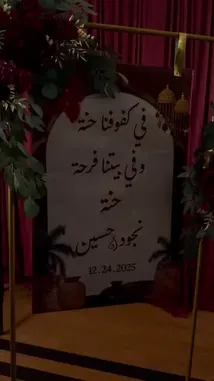 في كفوفنا حنة
وفي بيتنا فرحة
حنة
نجود & حسين
12.24.2025